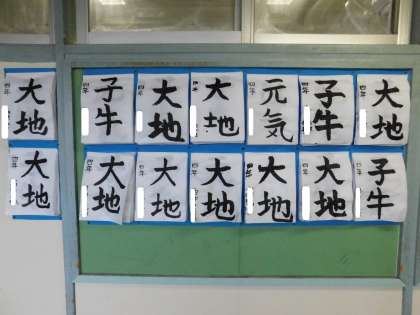 大地 四年
子牛 四年
大地 四年
大地 四年
元気 四年
子牛 四年
大地 四年
大地 四年
大地 四年
大地 四年
大地 四年
大地 四年
大地 四年
子牛 四年